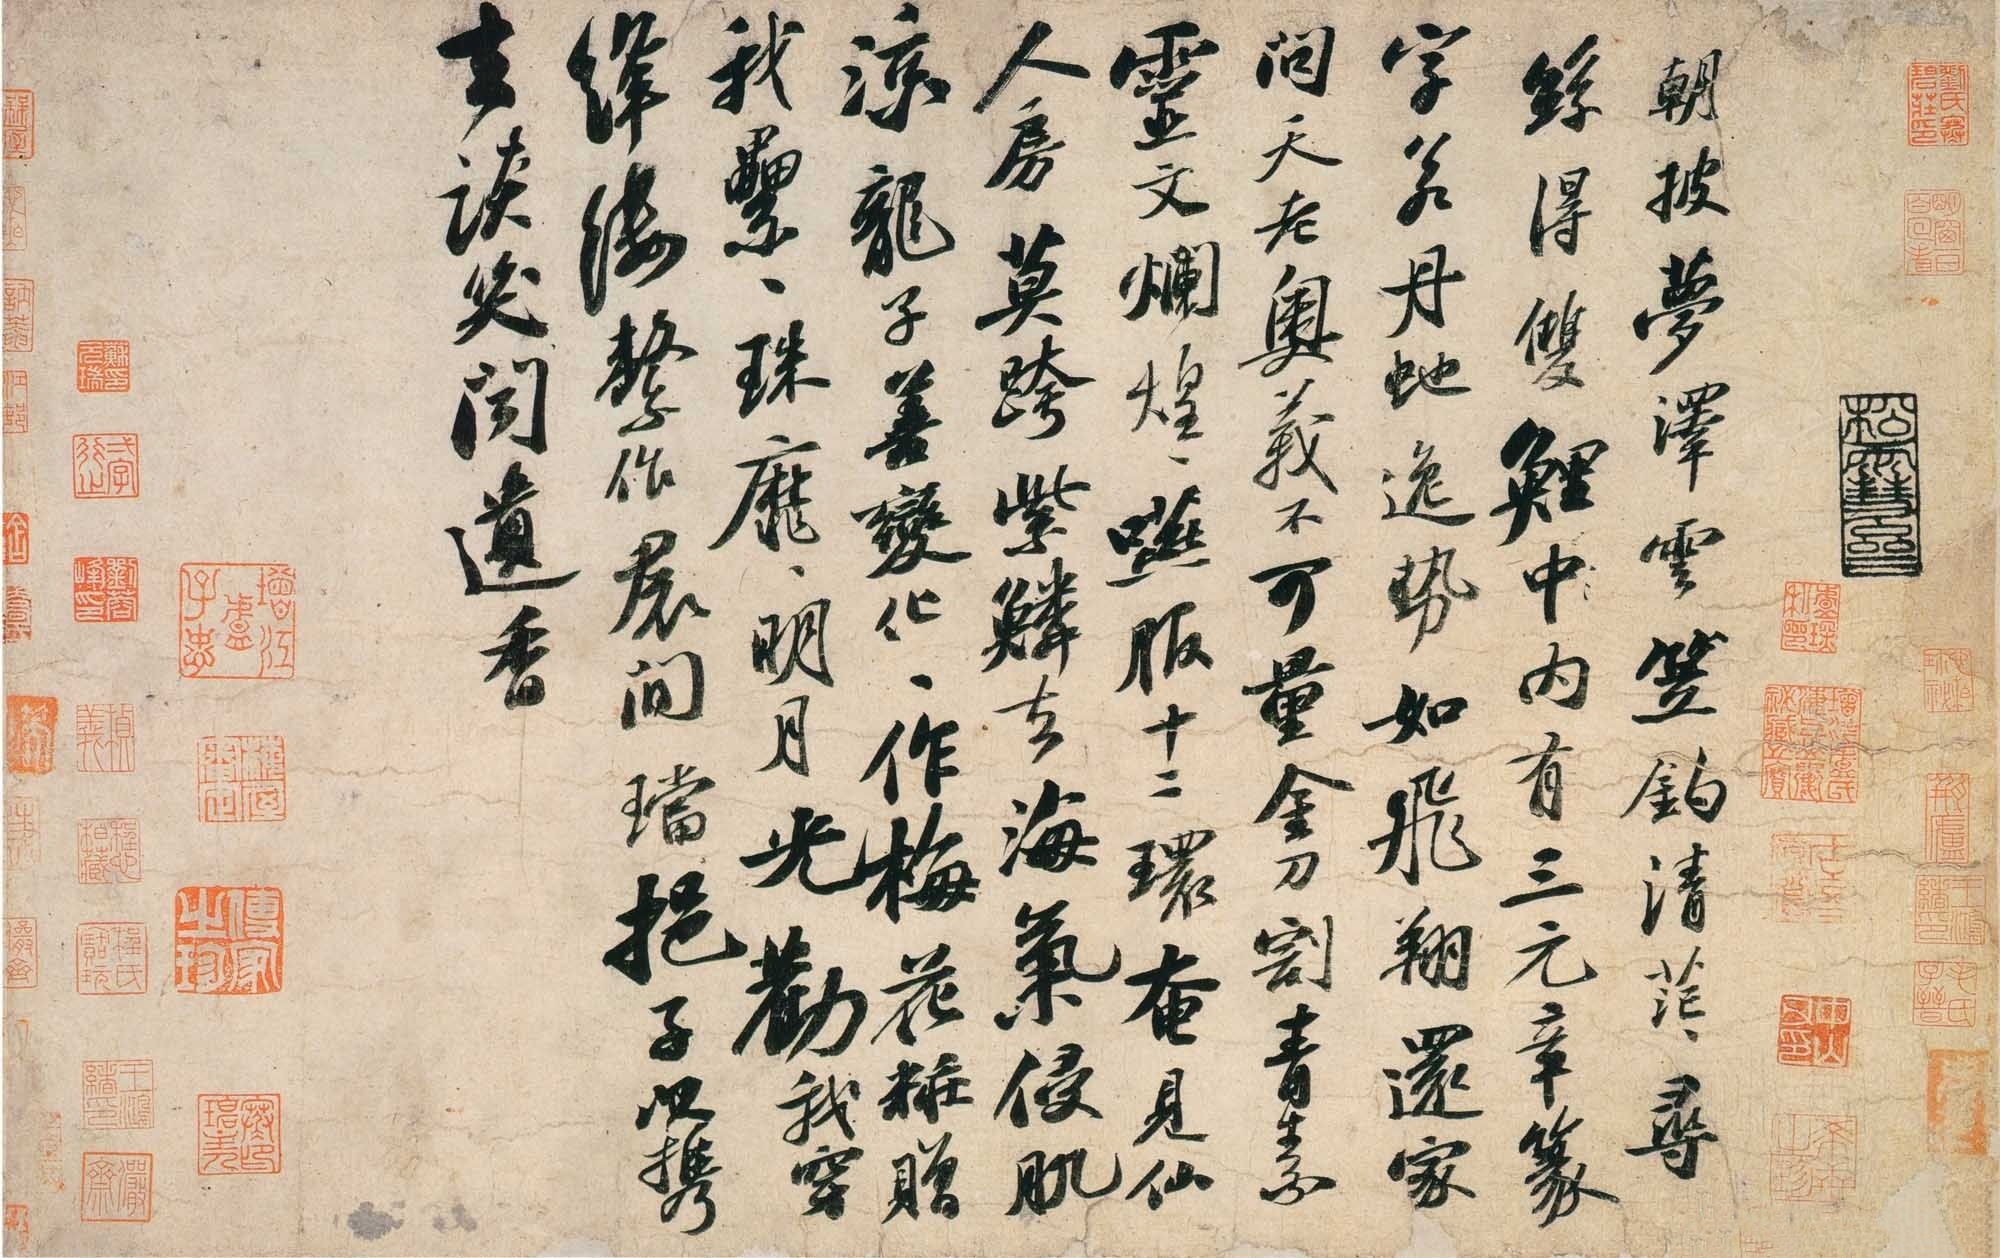 朝披夢澤雲笠釣清茫〻尋
絲得雙鯉中內有三元章篆
字若丹虵逸勢如飛翔還家
問天老奧義不可量金刀割青素
靈文爛煌〻嚥服十二環奄見仙
人房莫跨紫鱗去海氣侵肌
涼龍子善變化〻作梅花糚贈
我纍〻珠靡〻明月光勸我穿
絳縷繫作裾間璫挹子以攜
去談笑聞遺香